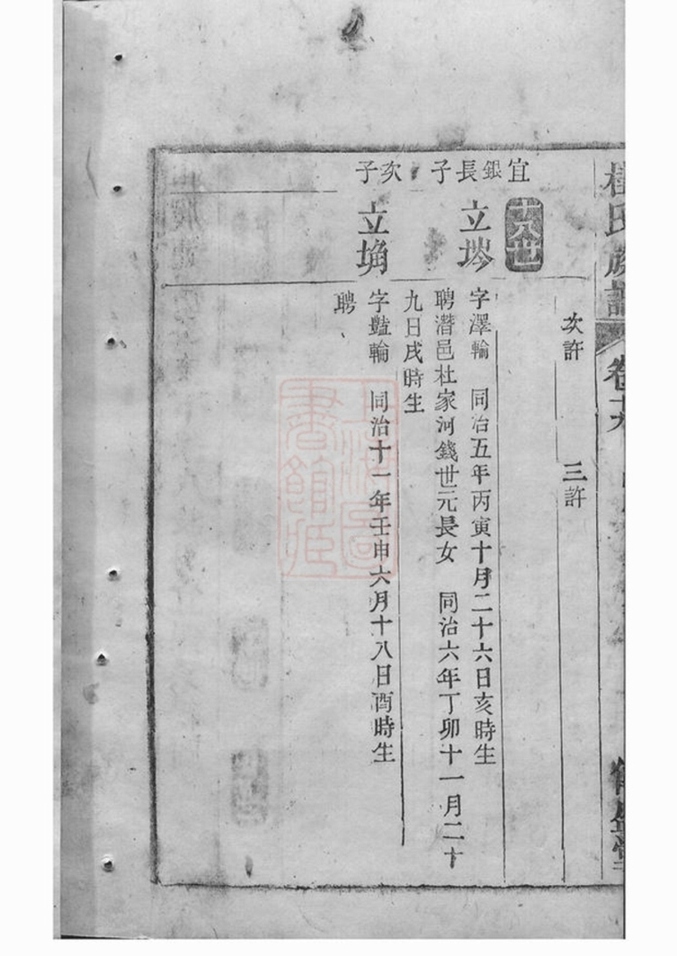 氏族譜
次許　三許
十八世
宜銀長子
立塝
字澤輪　同治五年丙寅十月二十六日亥時生
聘潛邑杜家河錢世元長女　同治六年丁卯十一月二十
九日戌時生
次子
立埆
字豔輪　同治十一年壬申六月十八日酉時生
聘